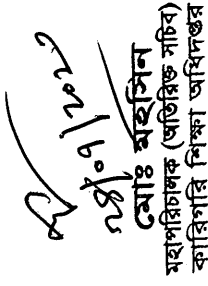 ২৪/০৭/২০২৩
মোঃ মহসিন
মহাপরিচালক (অতিরিক্ত সচিব)
কারিগরি শিক্ষা অধিদপ্তর